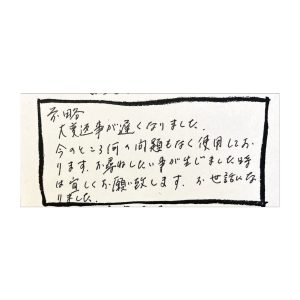 前略
大変返事が遅くなりました.
今のところ何の問題もなく使用してお
ります.お尋ねしたい事が生じました時
は宜しくお願い致します.お世話にな
りました.